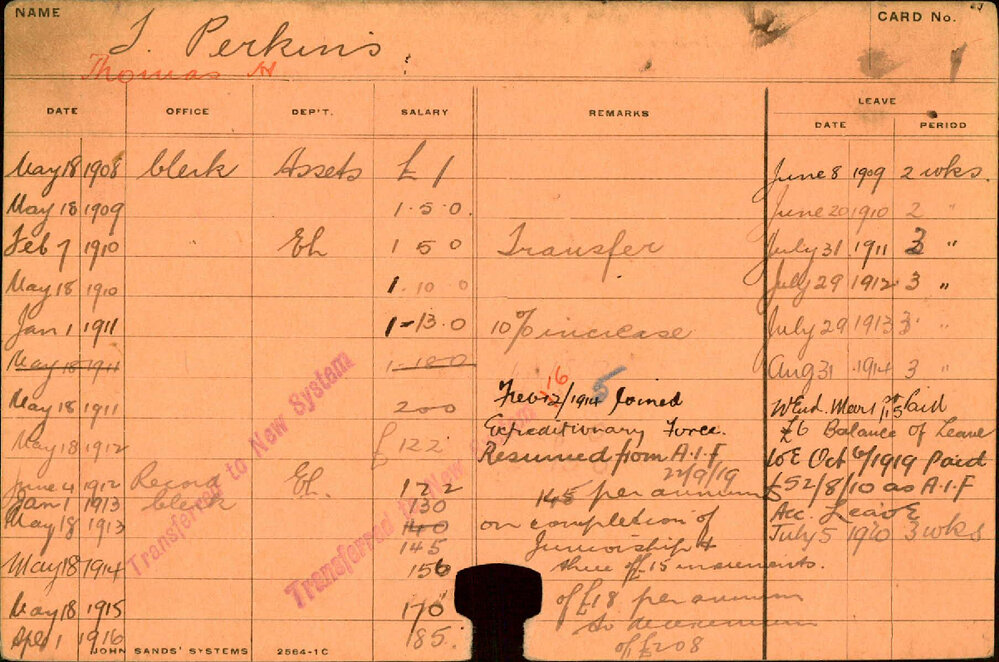 NAME
CARD No.
T. Perkins
Thomas H
DATE OFFICE DEP'T. SALARY REMARKS LEAVE
DATE PERIOD
May 18 1908 Clerk Assets £1 June 8 1909 2 wks.
May 18 1909 1.5.0. June 20 1910 2 "
Feb 7 1910 Eh 1 5 0 Transfer July 31 1911 3 "
May 18 1910 1.10.0 July 29 1912 3 "
Jan 1 1911 1-13.0 10% increase July 29 1913 3 "
May 18 1911 1.18.0 Aug 31 1914 3 "
16 5
May 18 1911 2.0.0 Feb 12/1914 Joined W End. Mar 1st /15 Paid
May 18 1912 £122 Expeditionary Force. £6 Balance of Leave
Resumed from A.I.F W E Oct 6/1919 Paid
22/9/19
June 4 1912 Record Eh. 122 145 per annum £52/8/10 as A.I.F
Jan 1 1913 Clerk 130 Acc. Leave
May 18 1913 140 on completion of July 5 1920 3 wks
145 Juniorship &
May 18 1914 156 three of £15 increments.
May 18 1915 170 of £18 per annum
to maximum
Apl 1 1916 185. of £208
Transferred to New System
Transferred to New System
JOHN SANDS' SYSTEMS 2564-1C